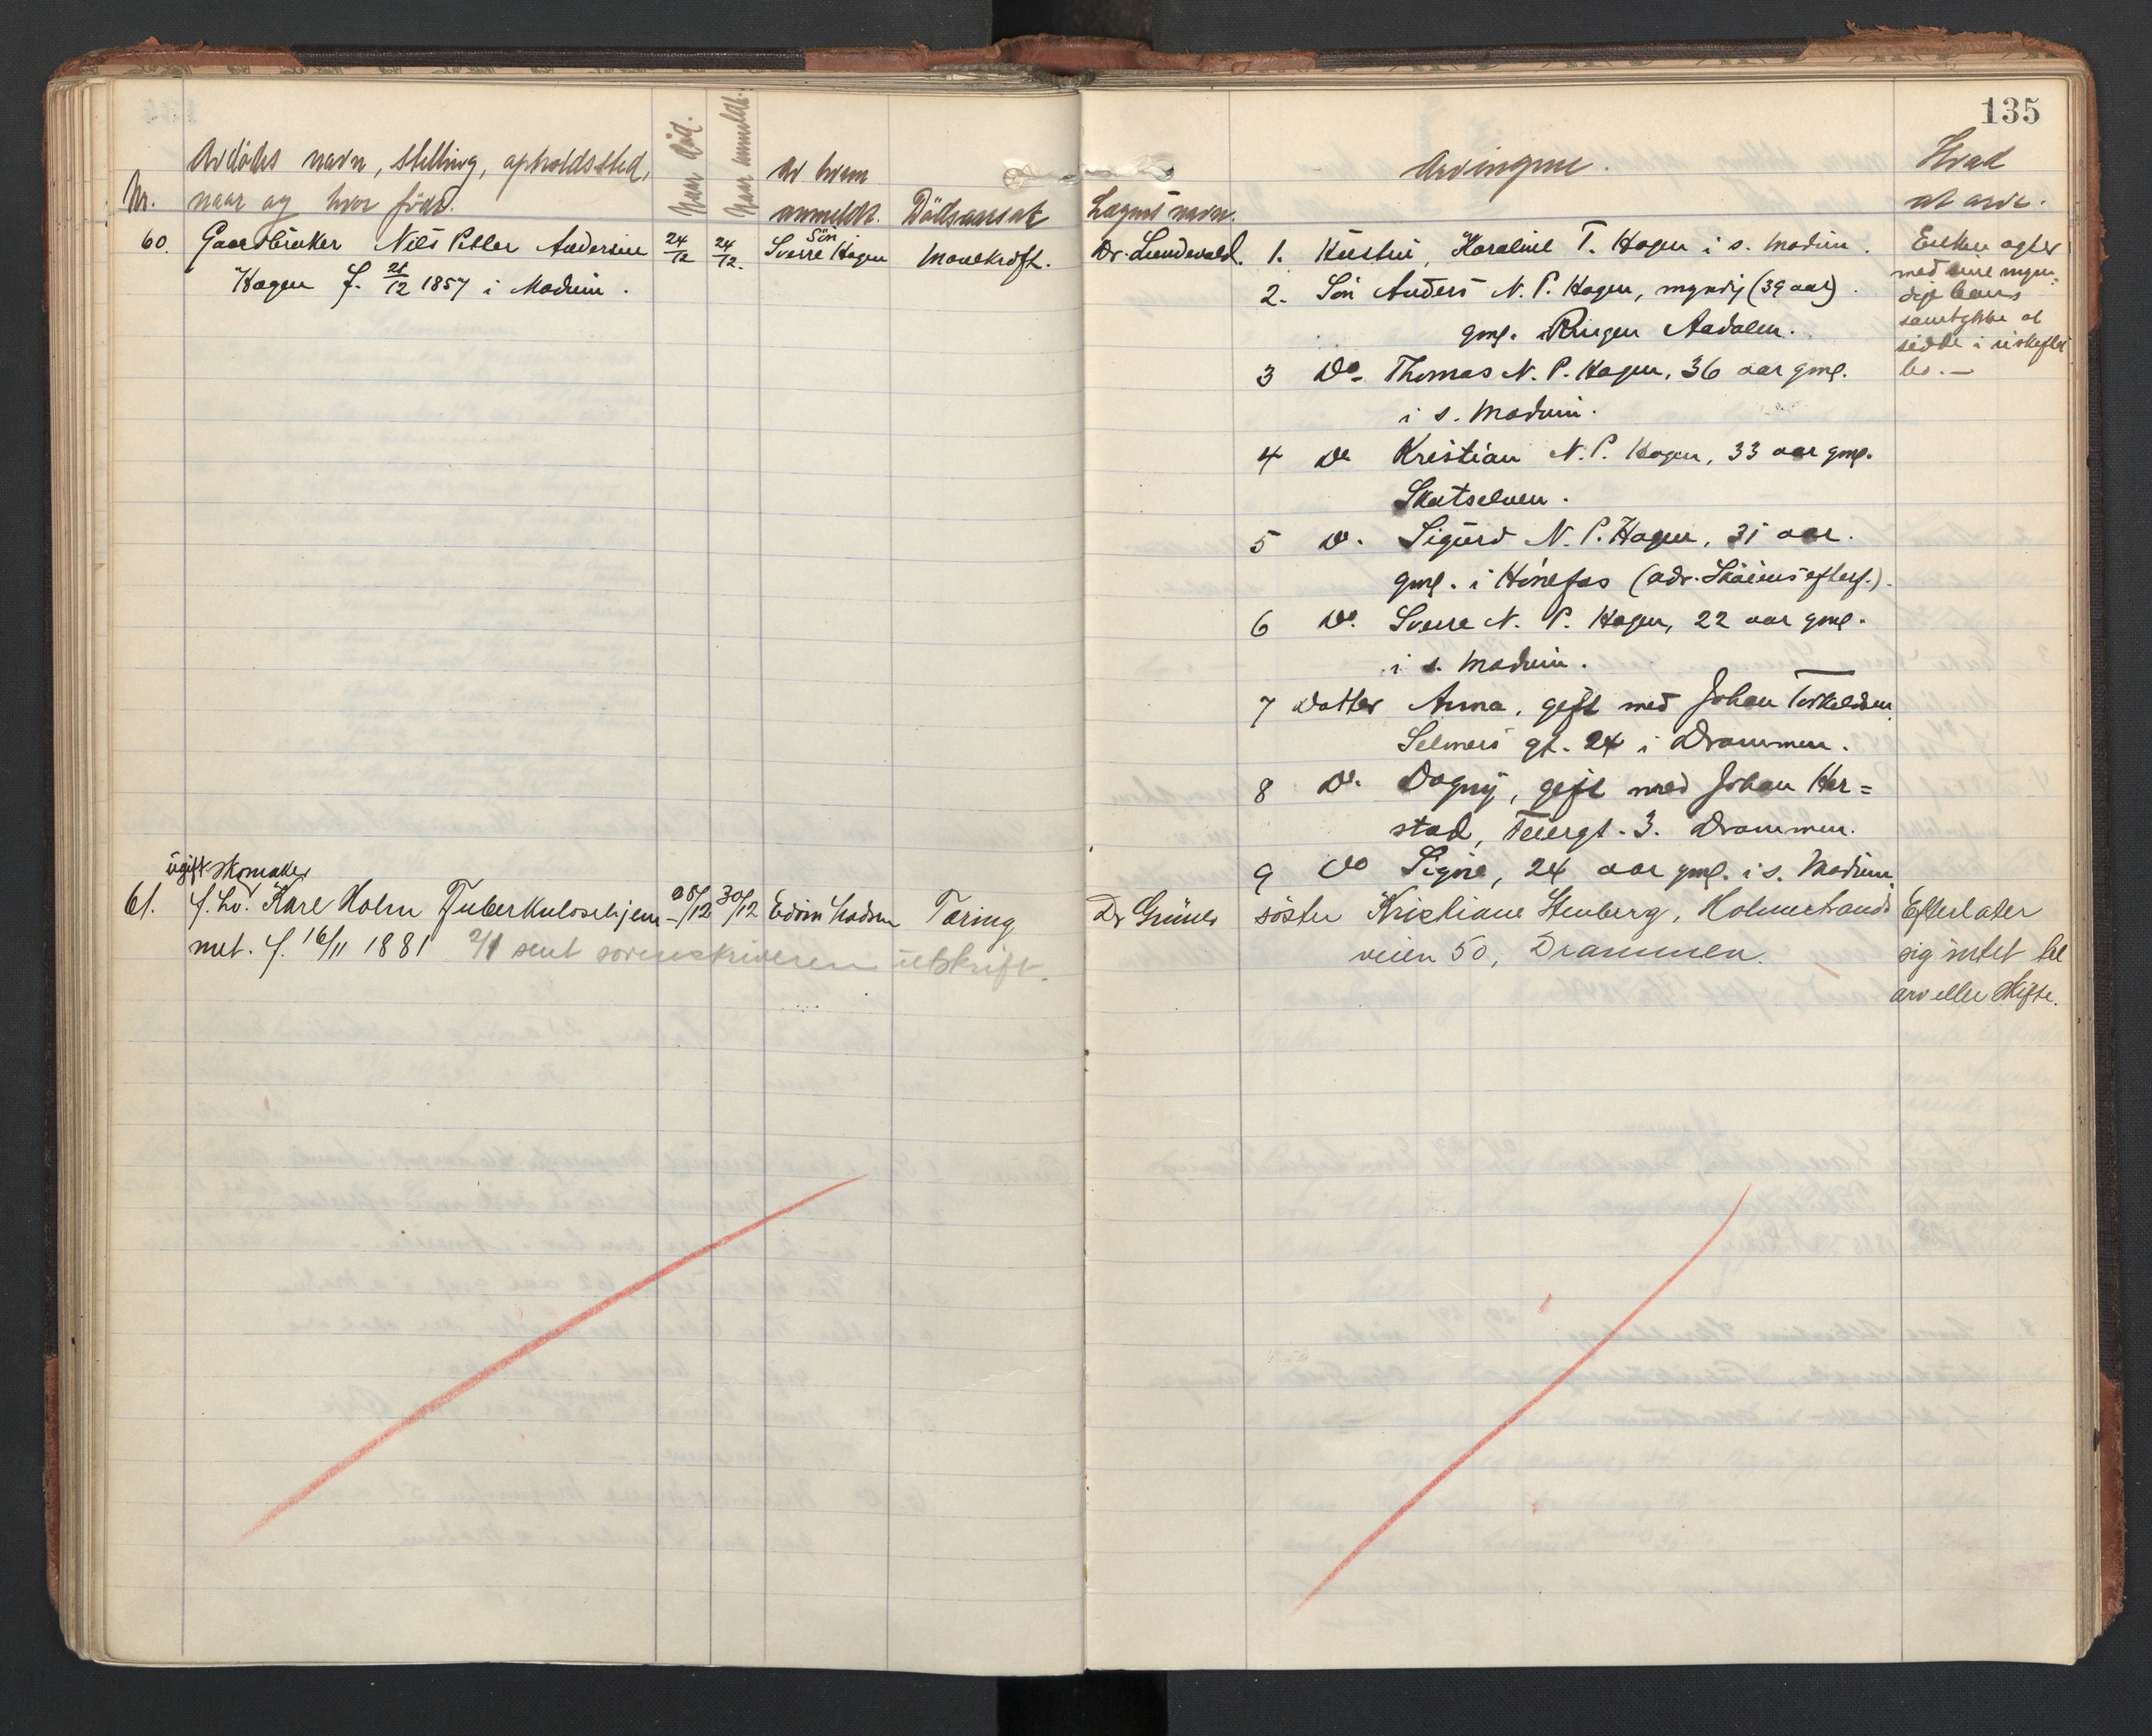 135
Nr.
Avdødes navn, stilling, opholdssted,
naar og hvor födt.
Naar död.
Naar anmeldt.
Av hvem
anmeldt.
Dödsaarsak
Lægens navn.
Arvingene.
Hvad
at arve.
60. Gaardbruker Nils Petter Andersen
Hagen f. 21/12 1857 i Modum.
24/12 24/12.
Sön
Sverre Hagen
Mavekræft.
Dr. Lundevald.
1. Hustru, Karoline T. Hagen i s. Modum.
2. Sön Anders N. P. Hagen, myndig (39 aar).
gml. Ringen Aadalen.
3 Do. Thomas N. P. Hagen, 36 aar gml.
i s. Modum.
4 Do Kristian N. P. Hagen, 33 aar gml.
Skotselven.
5 Do. Sigurd N. P. Hagen, 31 aar.
gml. i Hönefos (adr. efterf.).
6 Do. Sverre N. P. Hagen, 22 aar gml.
i s. Modum.
7 Datter Anna, gift med Johan Torkeldsen
Selmers gt. 24 i Drammen.
8 Do. Dagny, gift med Johan Her=
stad, Teiergt. 3. Drammen.
9 Do Signe, 24 aar gml. i s. Modum.
Enken agter
med sine myn=
dige barns
samtykke at
sidde i uskiftet
bo.—
ugift skomaker
61. f. Lv. Karl Holm Tuberkulosehjem
met. f. 16/11 1881 2/1 sent sorenskriveren utskrift.
28/12 30/12 Edvin Madsen Tæring
Dr Grüner söster Kristiane Stenberg, Holmestrands
veien 50, Drammen.
Efterlater
sig intet til
arv eller skifte.